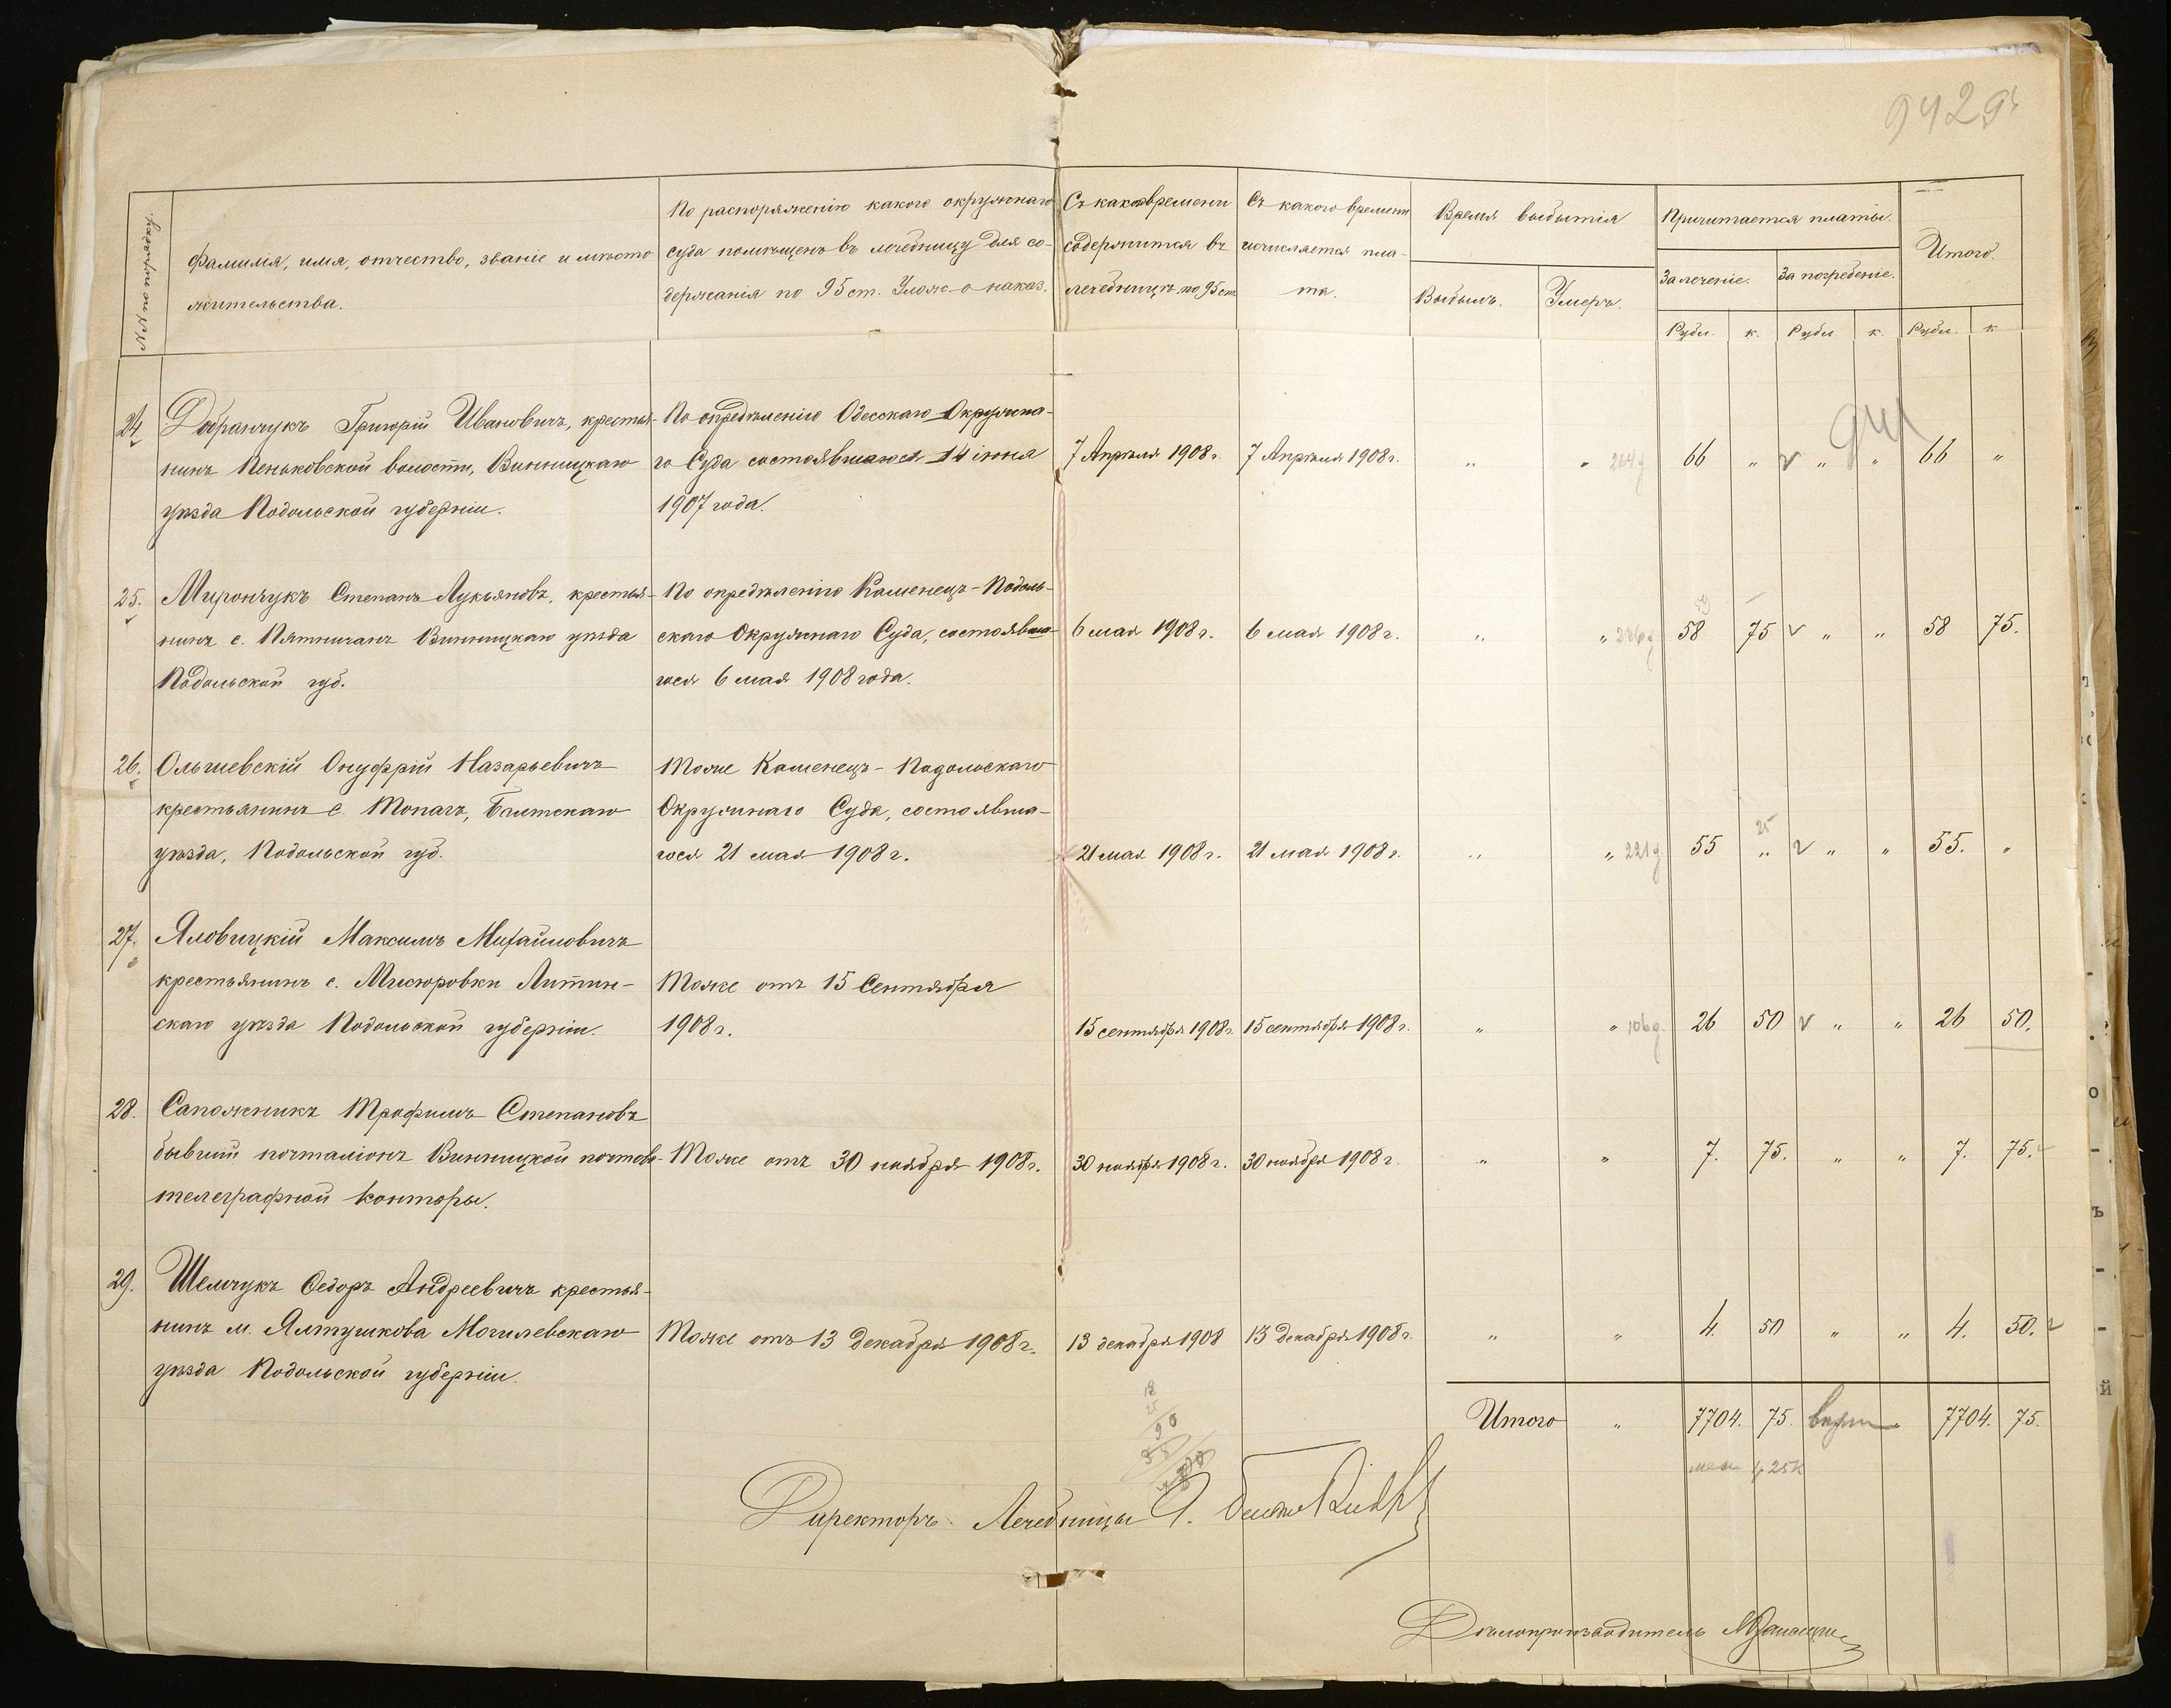 942
№№ по порядку.
Фамилія, имя, отчество, званіе и мѣсто
жительства.
По распоряженію какого окружнаго
суда помѣщенъ въ лечебницу для со-
держанія по 95 ст. Улож. о наказ.
Съ какого времени
содержится въ
лечебницѣ по 95 ст.
Съ какого времени
исчисляется пла-
та.
Время выбытія
Выбылъ.
Умеръ.
Причитается платы.
За леченіе.
За погребеніе.
Итого.
Рубл. к. Рубл к. Рубл. к
24
Добранчукъ Григорій Ивановичъ, крестья-
нинъ Пеньковской волости, Винницкаго
уѣзда Подольской губерніи.
По опредѣленію Одесскаго Окружна-
го Суда состоявшагося 14 іюня
1907 года.
7 Апрѣля 1908 г. 7 Апрѣля 1908 г. „ „ 264д 66 „ „ „ 66 „
25.
Мирончукъ Степанъ Лукьяновъ, крестья-
нинъ с. Пятничанъ Винницкаго уѣзда
Подольской губ.
По опредѣленію Каменецъ-Подоль-
скаго Окружнаго Суда, состоявша-
гося 6 мая 1908 года.
59
6 мая 1908 г. 6 мая 1908 г. „ „ 58 75 „ „ 58 75.
26.
Ольшевскій Онуфрій Назарьевичъ
крестьянинъ с. Топагъ, Балтскаго
уѣзда, Подольской губ.
Тоже Каменецъ-Подольскаго
Окружнаго Суда, состоявша-
гося 21 мая 1908 г.
25
21 мая 1908 г. 21 мая 1908 г. „ „ 221д 55 „ „ „ 55. „
27.
Яловицкій Максимъ Михайловичъ
крестьянинъ с. Мисюровки Литин-
скаго уѣзда Подольской губерніи.
Тоже отъ 15 Сентября
1908 г.
15 сентября 1908 г. 15 сентября 1908 г. „ „ 106д. 26 50 „ „ 26 50.
28.
Сапожникъ Трофимъ Степановъ
бывшій почталіонъ Винницкой почтово-
телеграфной конторы.
Тоже отъ 30 ноября 1908 г.
30 ноября 1908 г. 30 ноября 1908 г. „ „ 7. 75. „ „ 7. 75.
29.
Шемчукъ Ѳедоръ Андреевичъ крестья-
нинъ м. Ялтушкова Могилевскаго
уѣзда Подольской губерніи.
Тоже отъ 13 декабря 1908 г.
13 декабря 1908 13 декабря 1908 г. „ „ 4. 50 „ „ 4. 50.
Итого „ 7704. 75. 7704. 75.
25к
Директоръ Лечебницы
Дѣлопроизводитель